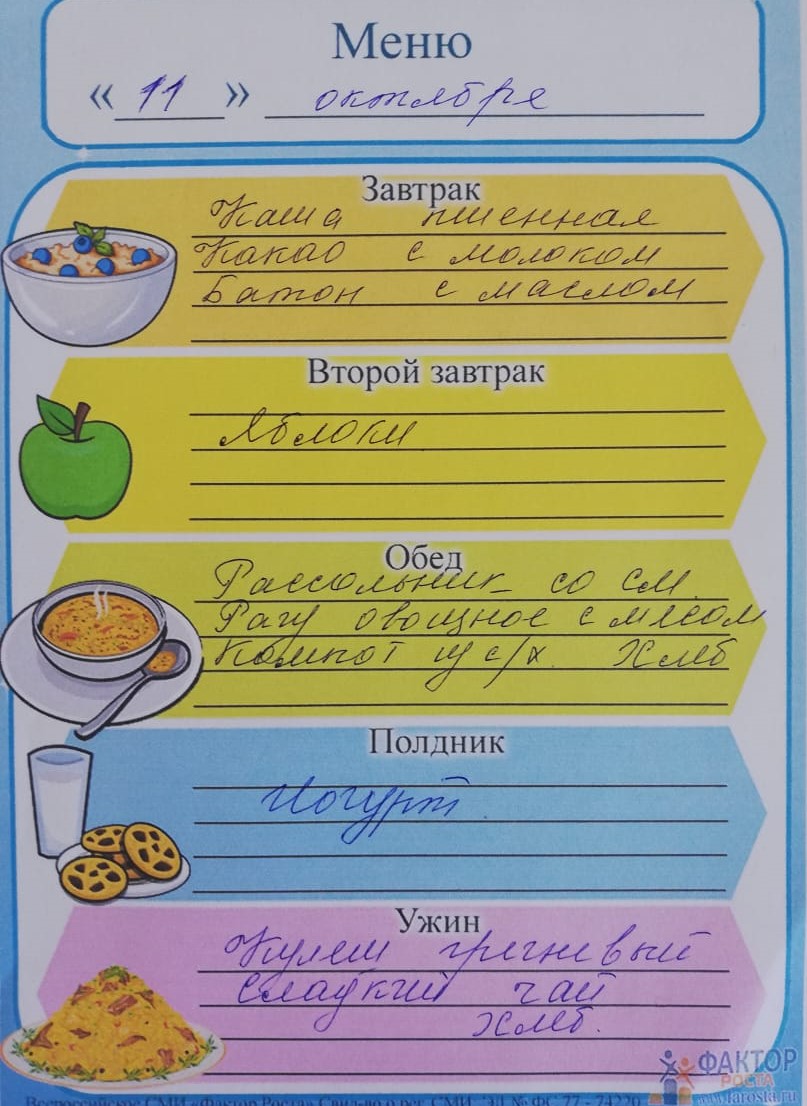 Меню
« 11 » октября
Завтрак
Каша пшенная
Какао с молоком
Батон с маслом
Второй завтрак
Яблоки
Обед
Рассольник со см.
Рагу овощное с мясом
Компот из с/х. Хлеб
Полдник
Йогурт.
Ужин
Кулеш гречневый
Сладкий чай
Хлеб.
ФАКТОР
РОСТА
www.farosta.ru
Всероссийское СМИ «Фактор Роста» Свид-во о рег. СМИ: ЭЛ № ФС 77 - 74220